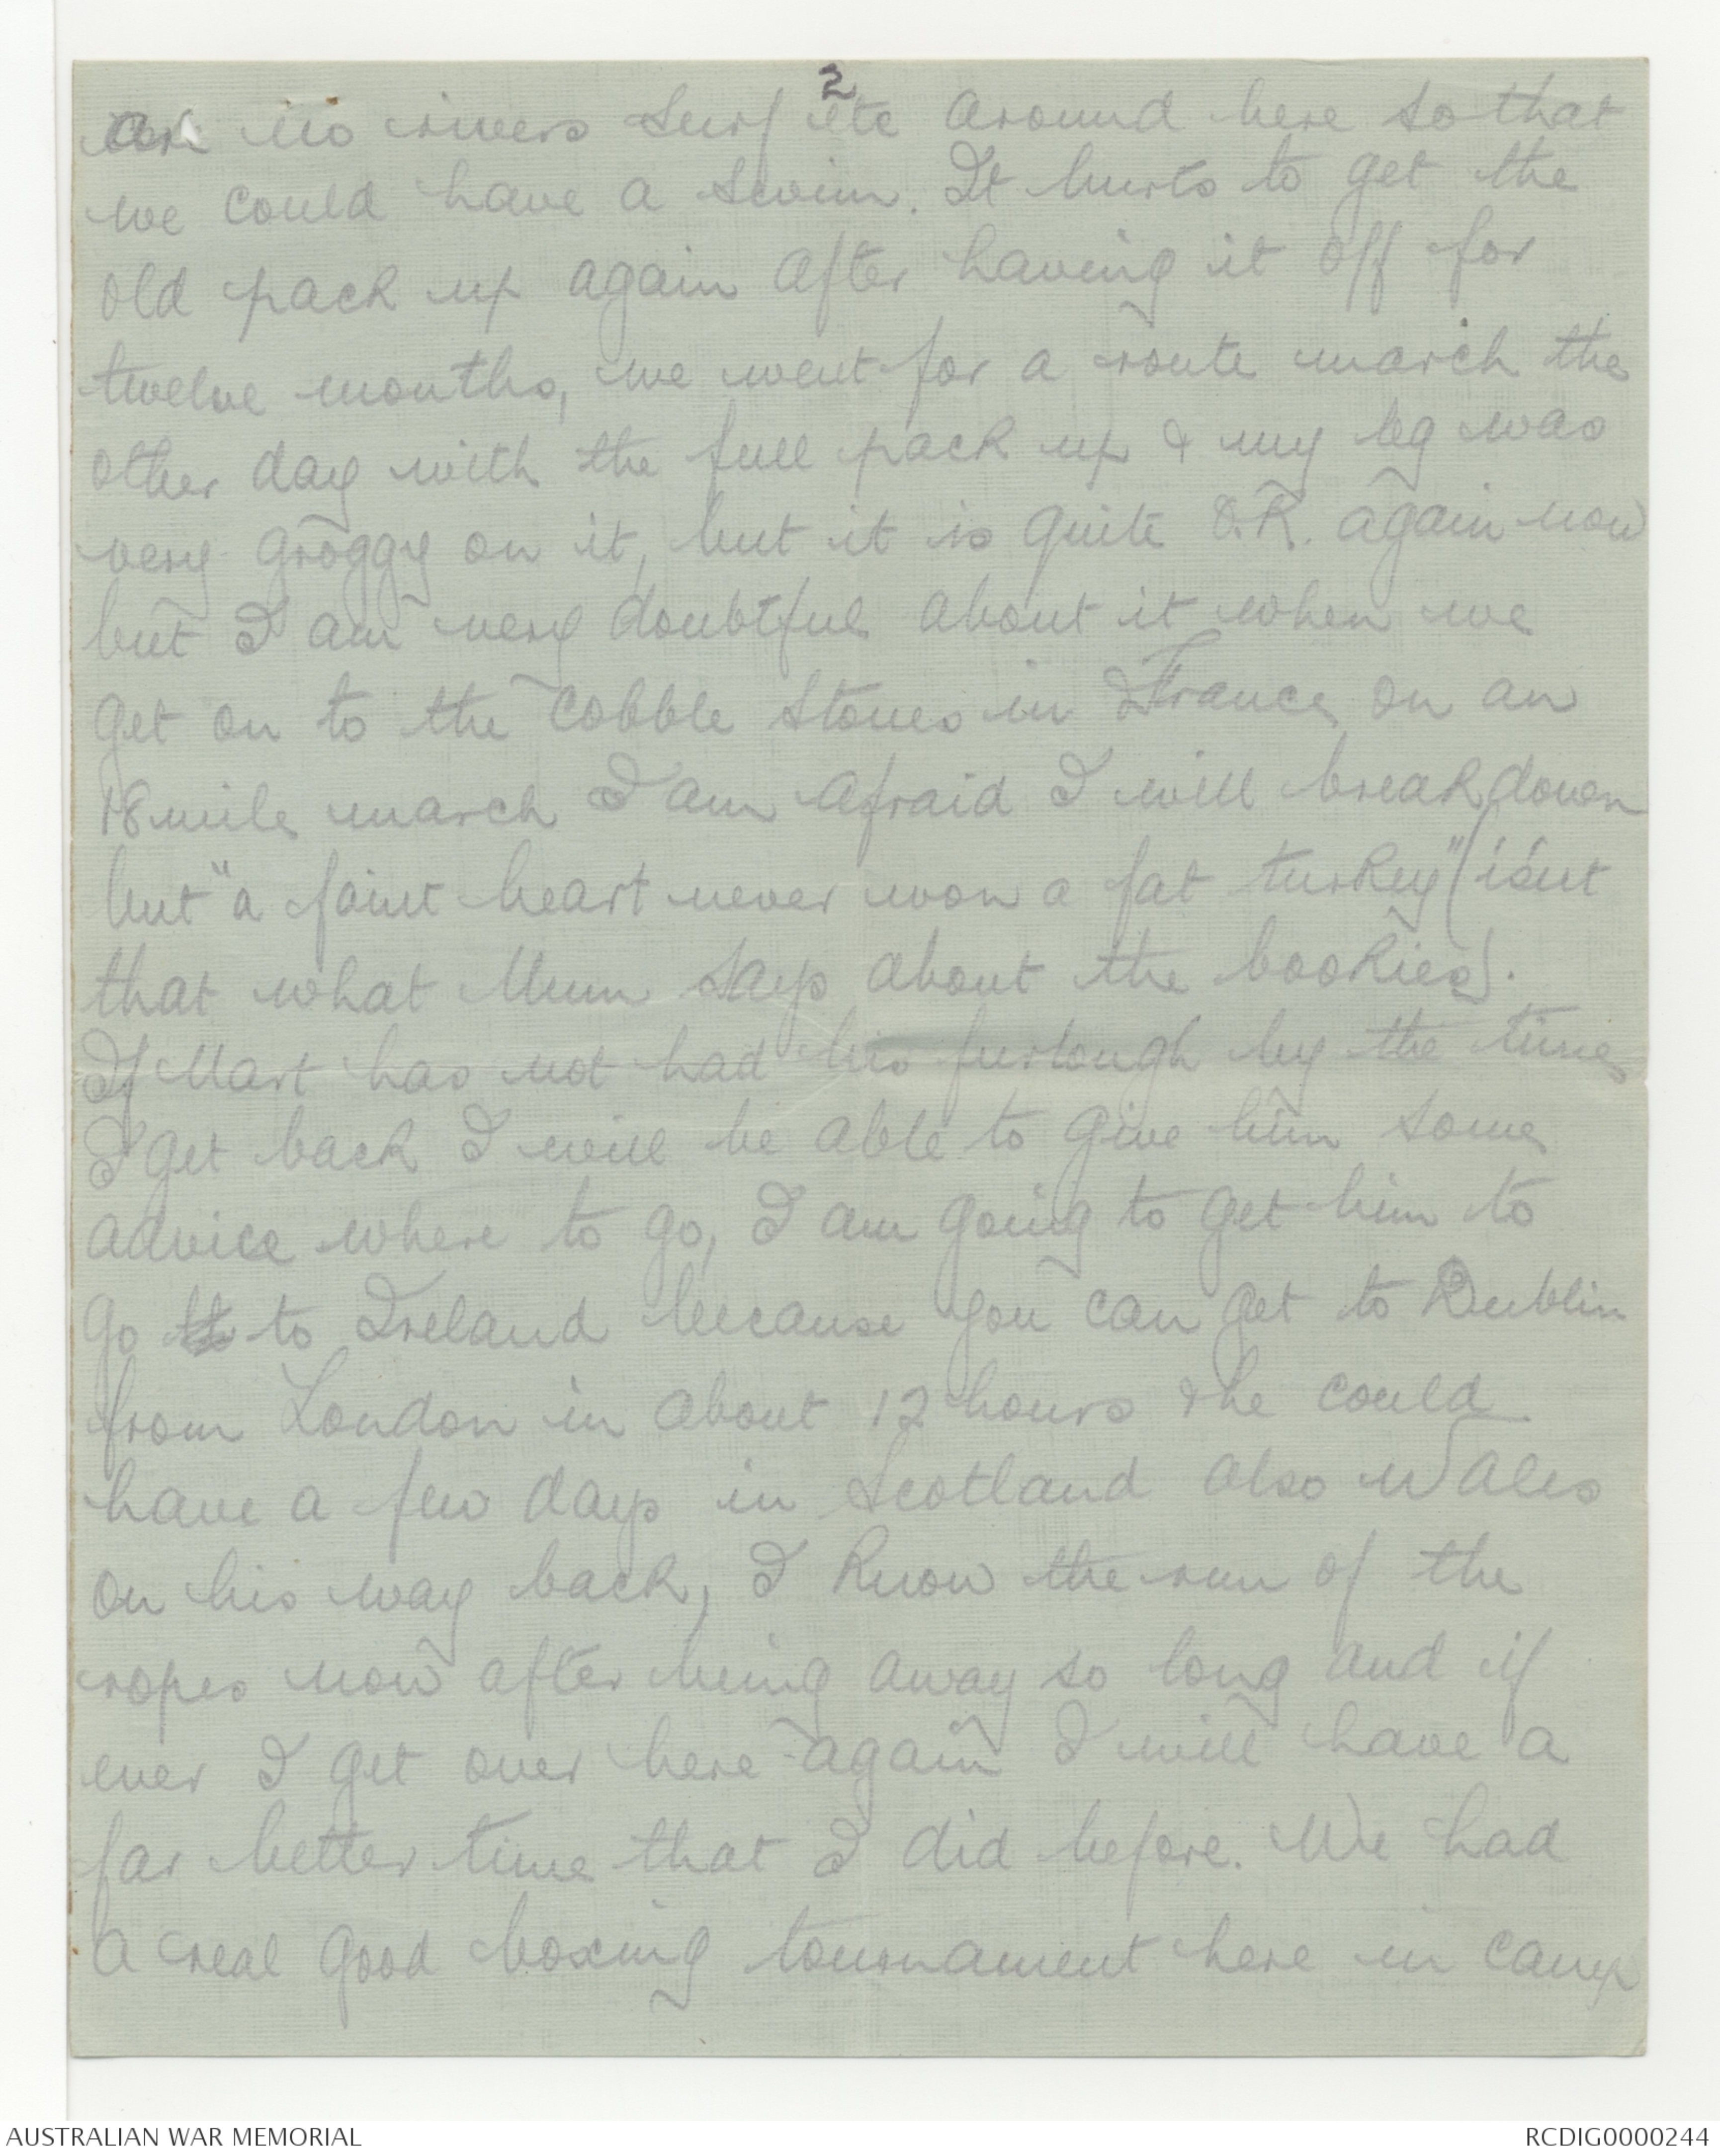 2
are no rivers surf etc around here so that
we could have a swim. It hurts to get the
old pack up again after having it off for
twelve months, we went for a route march the
other day with the full pack up & my leg was
very groggy on it, but it is quite O.K. again now
but I am very doubtful about it when we
get on to the cobble stones in France, on an
18 mile march I am afraid I will break down
but "a faint heart never won a fat turkey" (isn't
that what Mum says about the bookies).
If Mart has not had his furlough by the time
I get back I will be able to give him some
advice where to go, I am going to get him to
go to Ireland because you can get to Dublin
from London in about 12 hours & he could
have a few days in Scotland also Wales
on his way back, I know the run of the
ropes now after being away so long and if
ever I get over here again I will have a
far better time that I did before. We had
a real good boxing tournament here in camp
AUSTRALIAN WAR MEMORIAL
RCDIG0000244